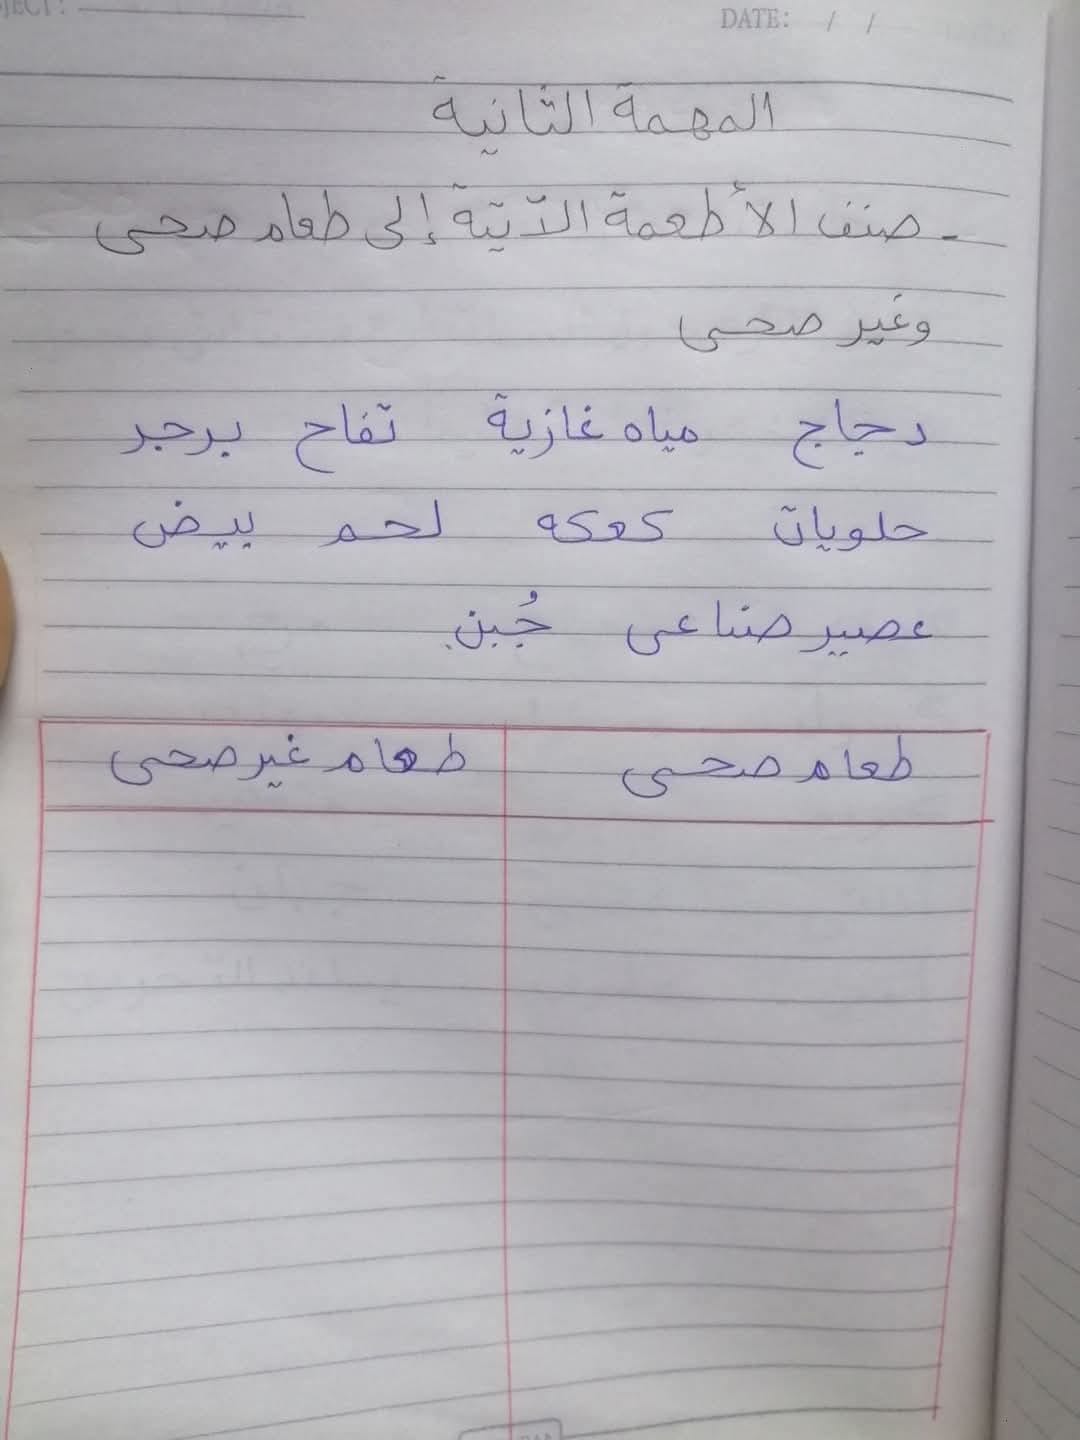 DATE: / /
المهمة الثانية
- صنف الأطعمة الآتية إلى طعام صحى
وغير صحى
دجاج مياه غازية تفاح برجر
حلويات كعكه لحم بيض
عصير صناعى جُبن.
طعام صحى طعام غير صحى